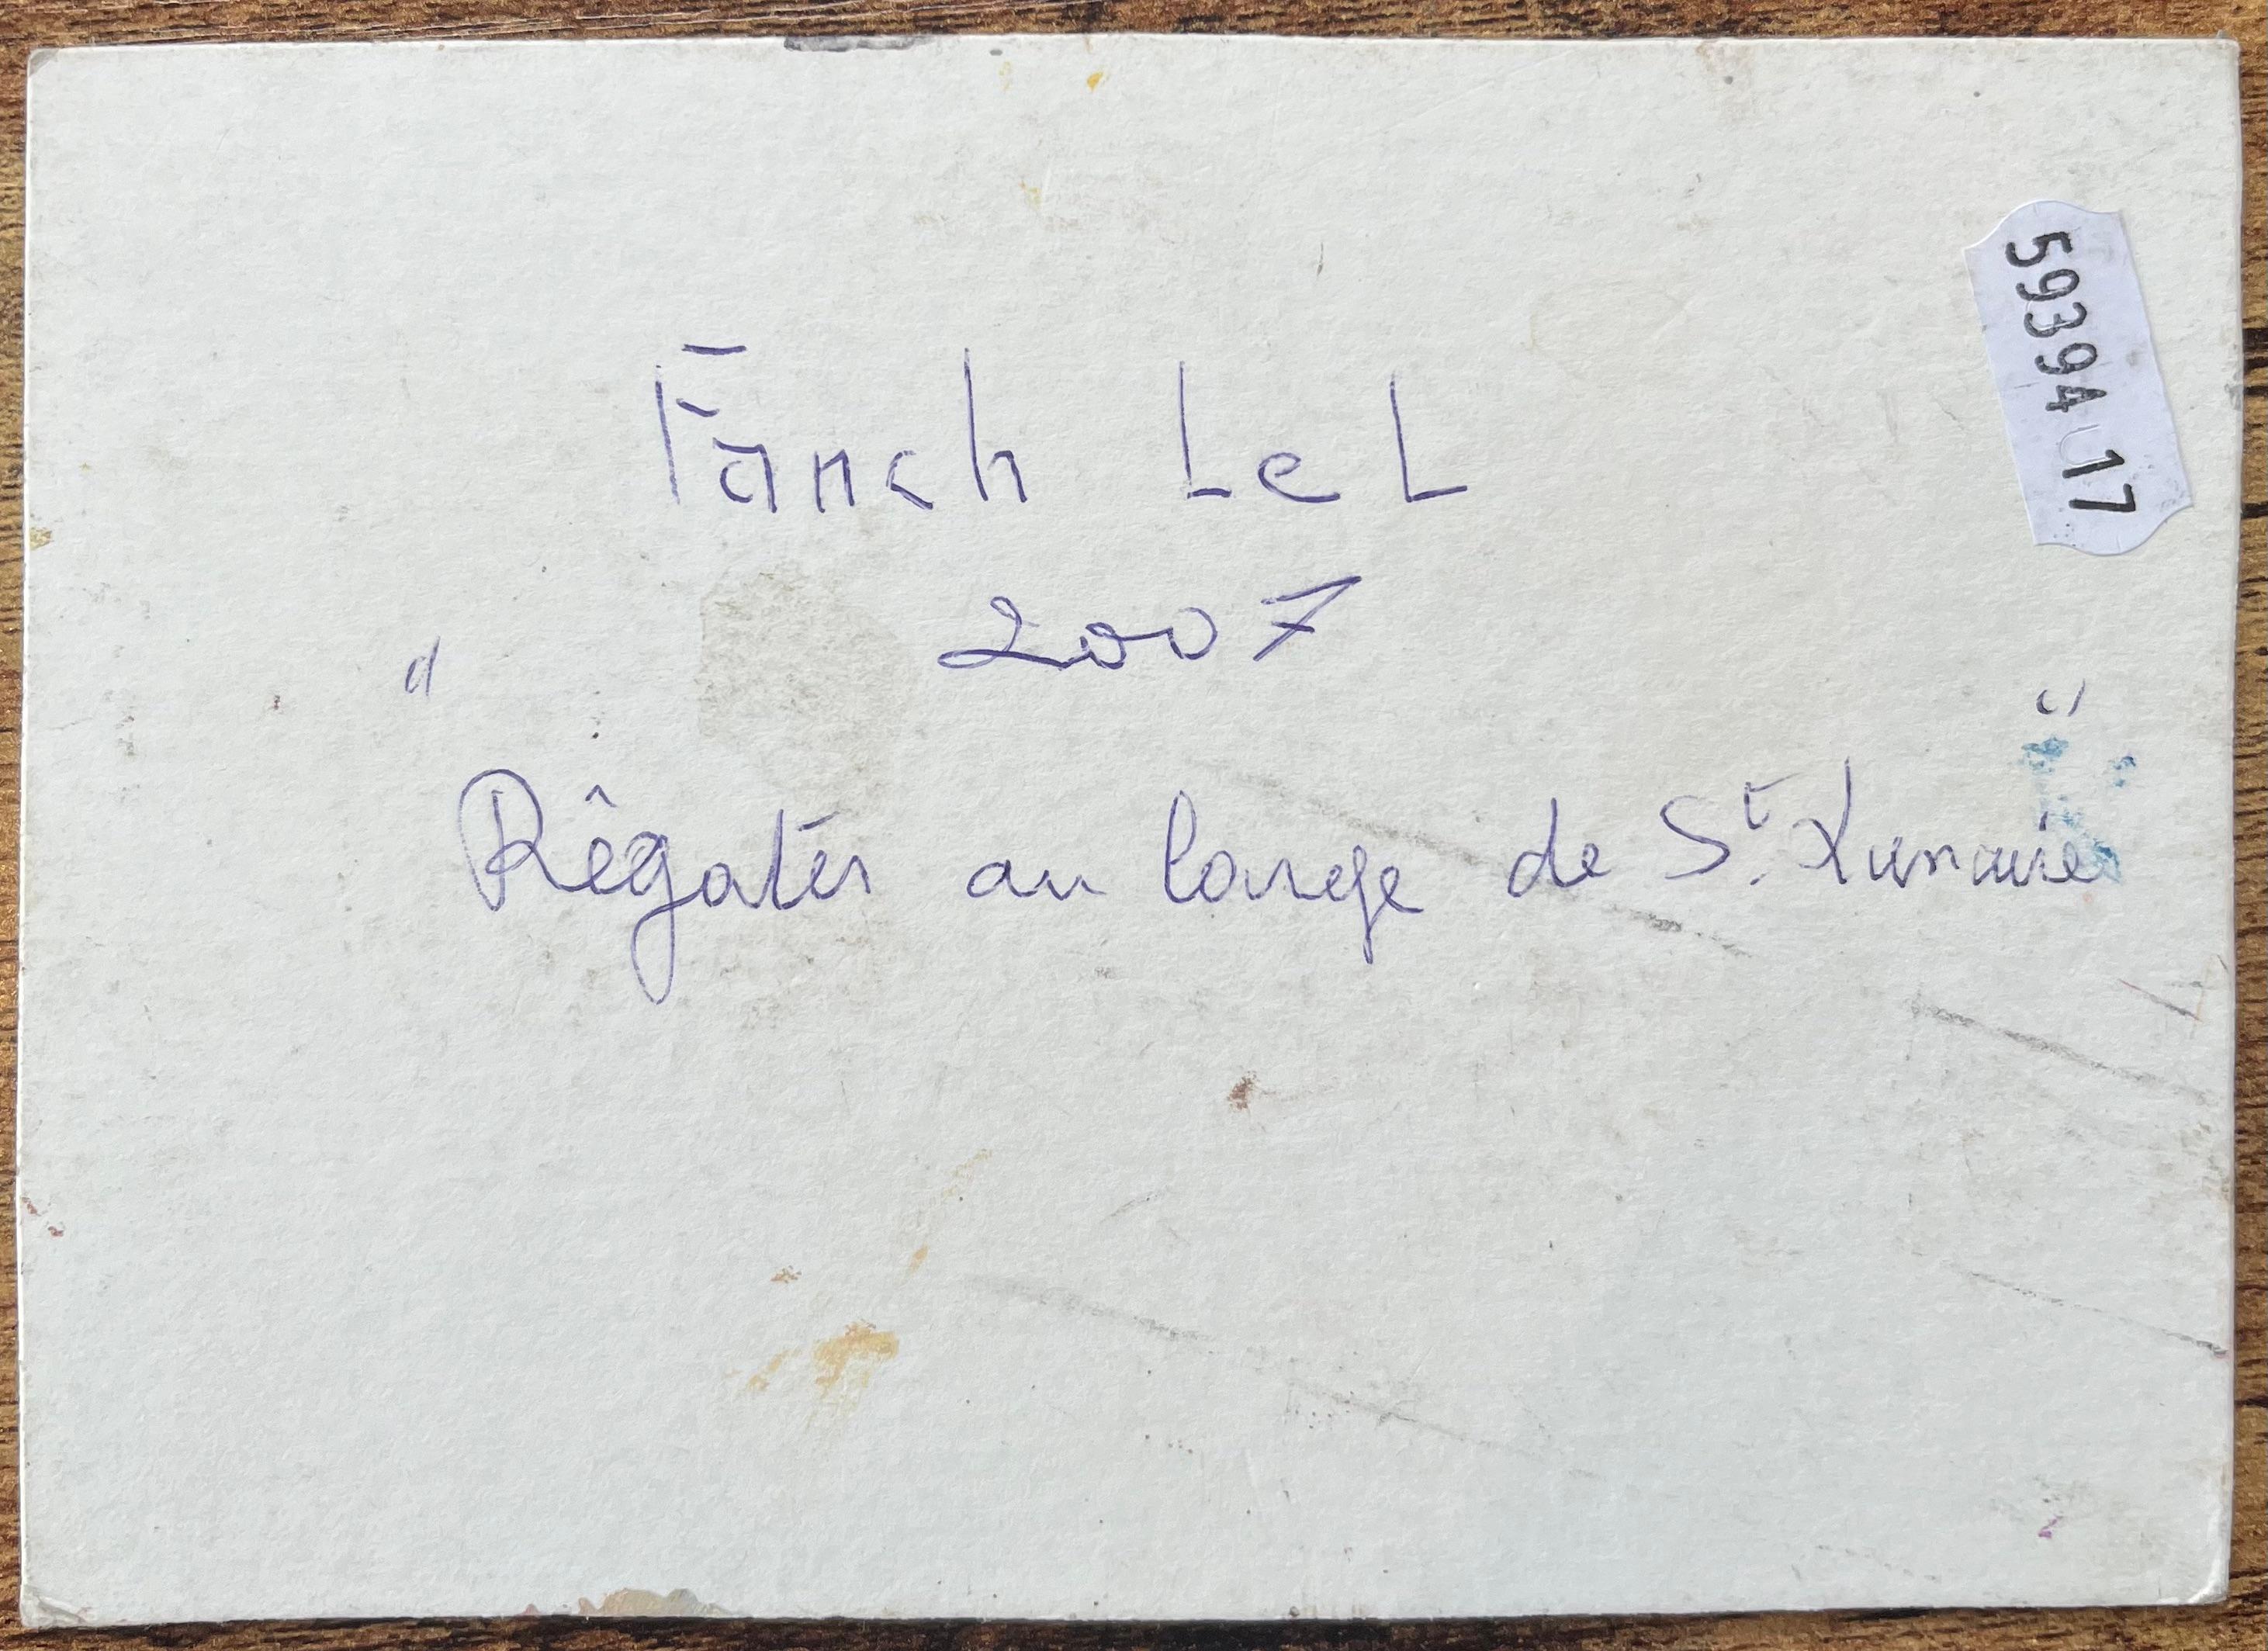 Fanch Le L
2007
" "
Rêgates au large de St. Lunaire
59394 17